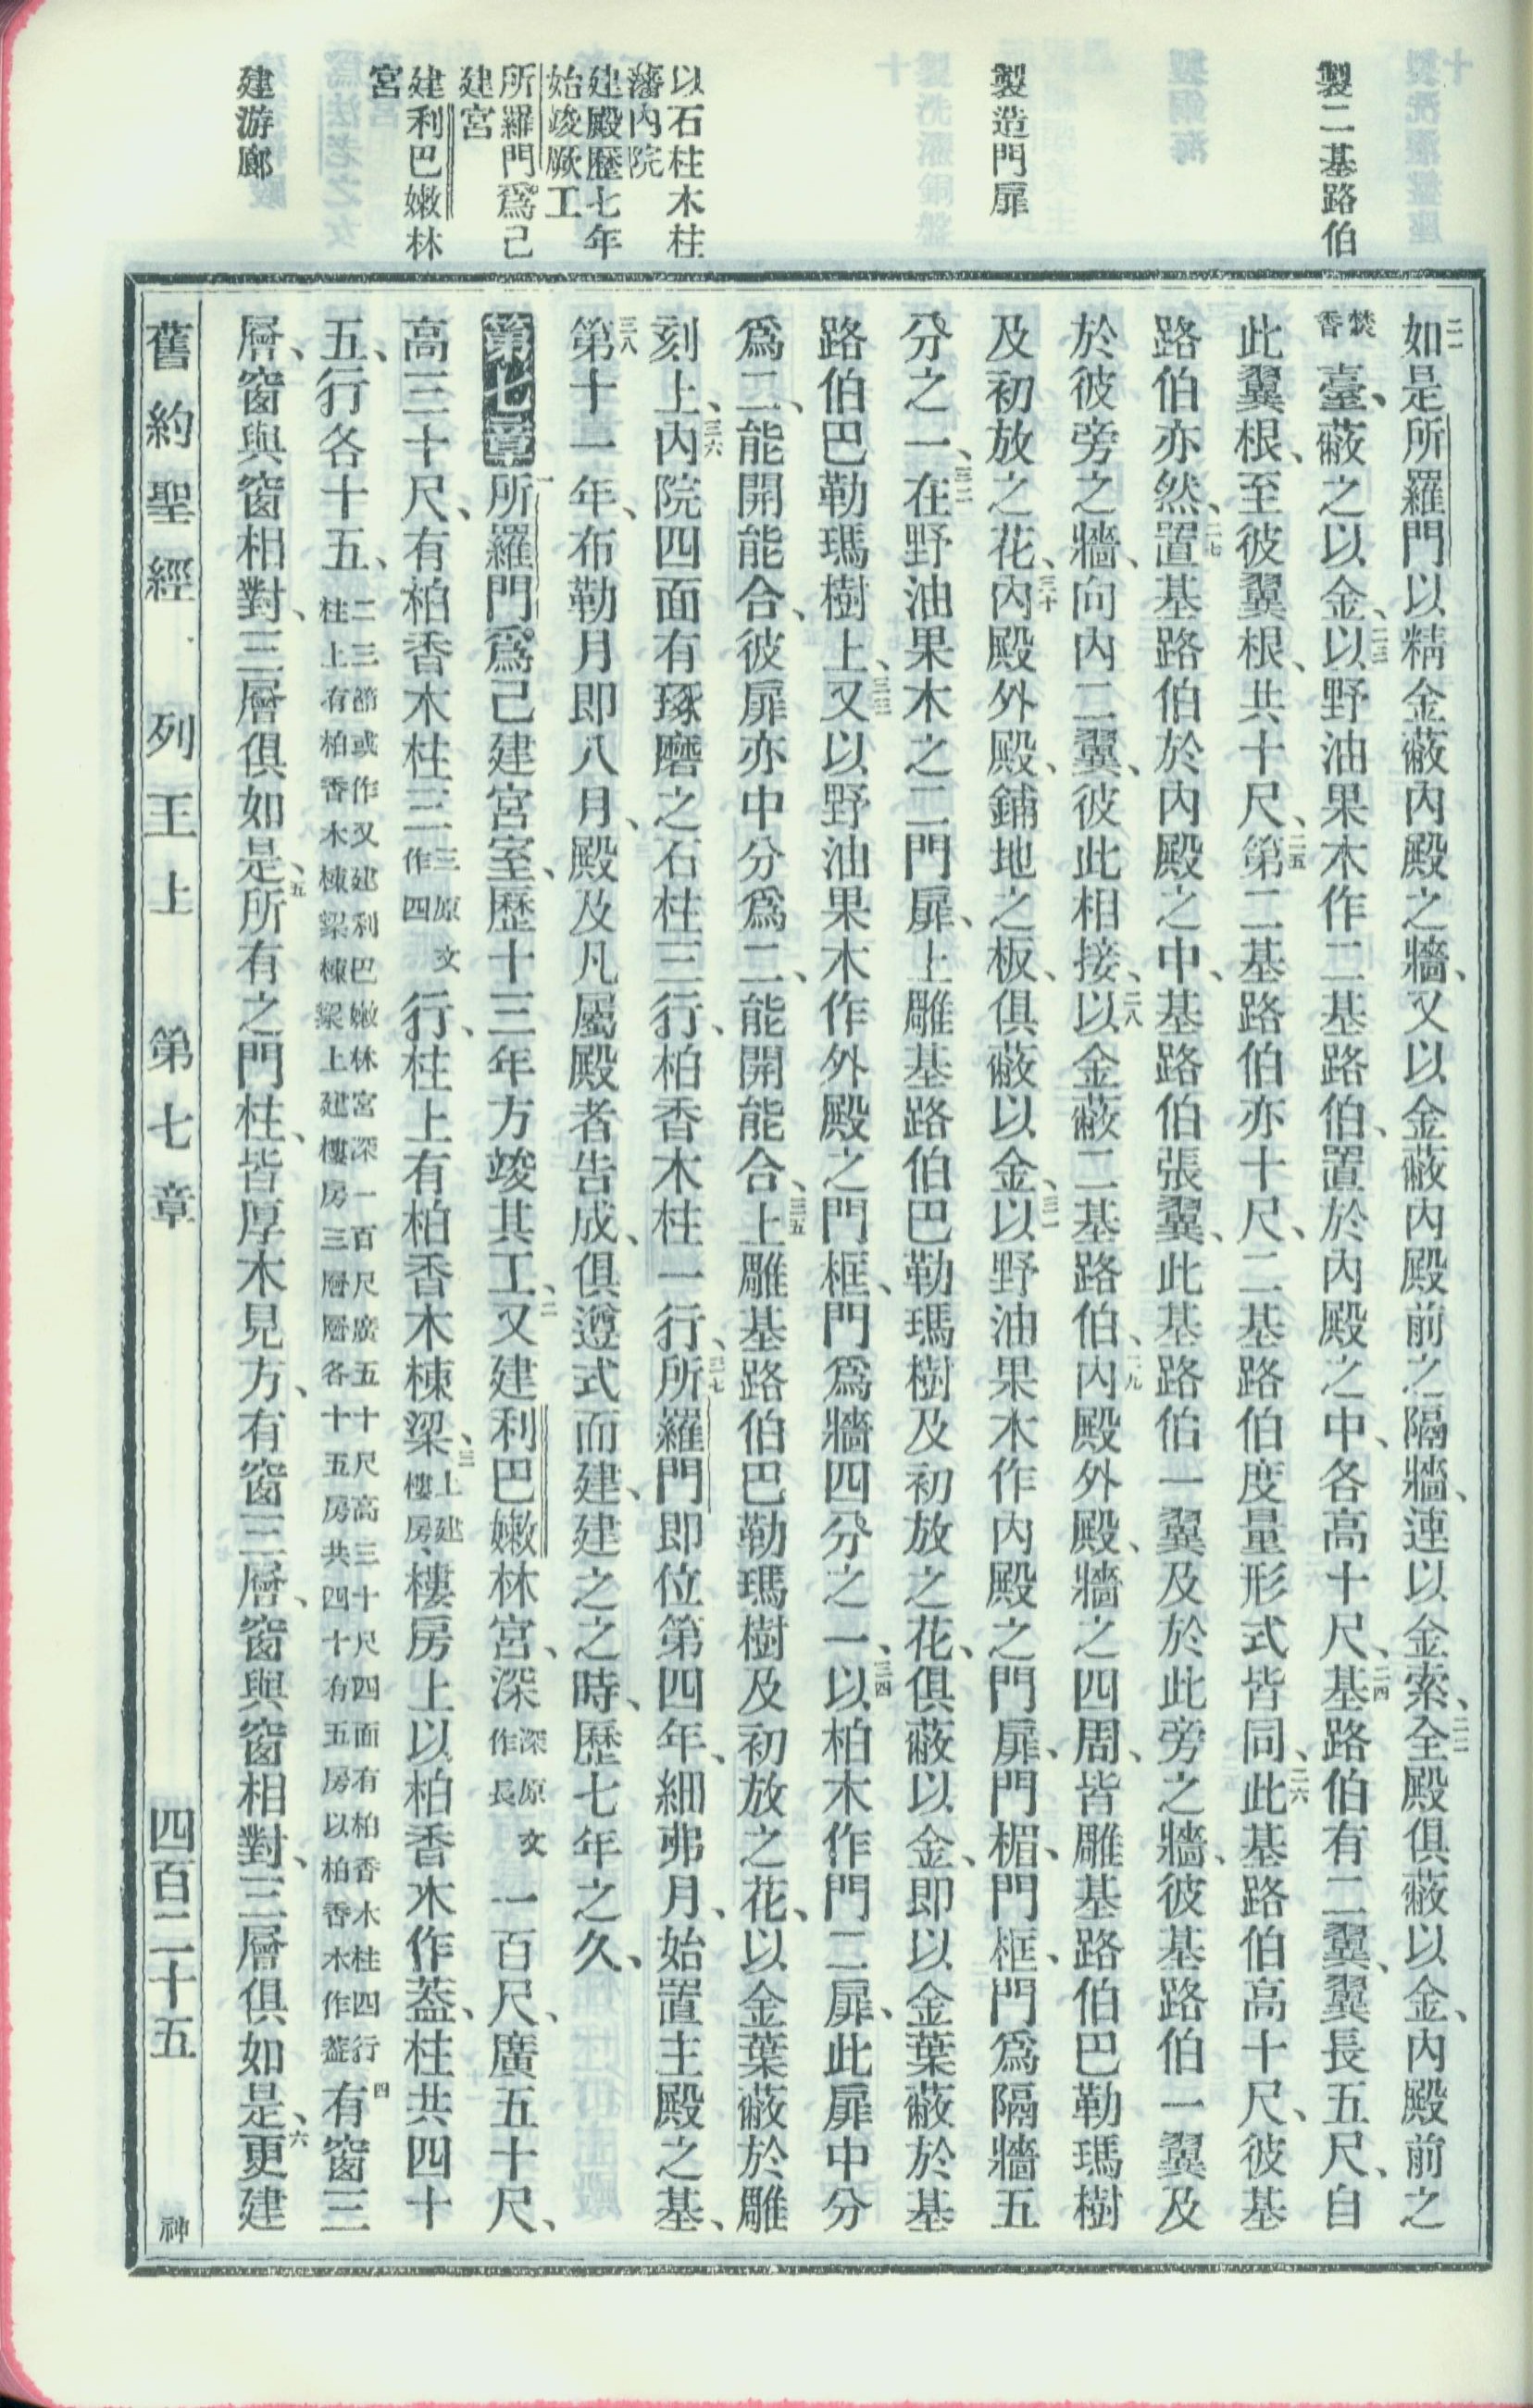 製二基路伯
製造門扉
以石柱木柱
藩內院
建殿歷七年
始竣厥工
所羅門爲己
建宮
建利巴嫩林
宮
建游廊
二一如是所羅門以精金蔽內殿之牆、又以金蔽內殿前之隔牆、連以金索、二二全殿俱蔽以金、內殿前之
焚香臺、蔽之以金、二三以野油果木作二基路伯、置於內殿之中、各高十尺、二四基路伯有二翼、翼長五尺、自
此翼根、至彼翼根、共十尺、二五第二基路伯亦十尺、二基路伯度量形式皆同、二六此基路伯高十尺、彼基
路伯亦然、二七置基路伯於內殿之中、基路伯張翼、此基路伯一翼及於此旁之牆、彼基路伯一翼及
於彼旁之牆、向內二翼、彼此相接、二八以金蔽二基路伯、二九內殿外殿、牆之四周、皆雕基路伯巴勒瑪樹
及初放之花、三十內殿外殿、鋪地之板、俱蔽以金、三一以野油果木作內殿之門扉、門楣、門框、門爲隔牆五
分之一、三二在野油果木之二門扉、上雕基路伯巴勒瑪樹及初放之花、俱蔽以金、即以金葉蔽於基
路伯巴勒瑪樹上、三三又以野油果木作外殿之門框、門爲牆四分之一、三四以柏木作門二扉、此扉中分
爲二、能開能合、彼扉亦中分爲二、能開能合、三五上雕基路伯巴勒瑪樹及初放之花、以金葉蔽於雕
刻上、三六內院四面有琢磨之石柱三行、柏香木柱一行、三七所羅門即位第四年、細弗月、始置主殿之基、
三八第十一年、布勒月即八月、殿及凡屬殿者告成、俱遵式而建、建之之時、歷七年之久、
第七章一所羅門爲己建宮室、歷十三年方竣其工、二又建利巴嫩林宮、深深原文作長一百尺、廣五十尺、
高三十尺、有柏香木柱三三原文作四行、柱上有柏香木棟梁、三上建樓房、樓房上以柏香木作蓋、柱共四十
五、行各十五、二三節或作又建利巴嫩林宮深一百尺廣五十尺高三十尺四面有柏香木柱四行柱上有柏香木棟梁棟梁上建樓房三層層各十五房共四十有五房以柏香木作蓋四有窗三
層、窗與窗相對、三層俱如是、五所有之門柱、皆厚木見方、有窗三層、窗與窗相對、三層俱如是、六更建
舊約聖經 列王上 第七章 四百二十五 神